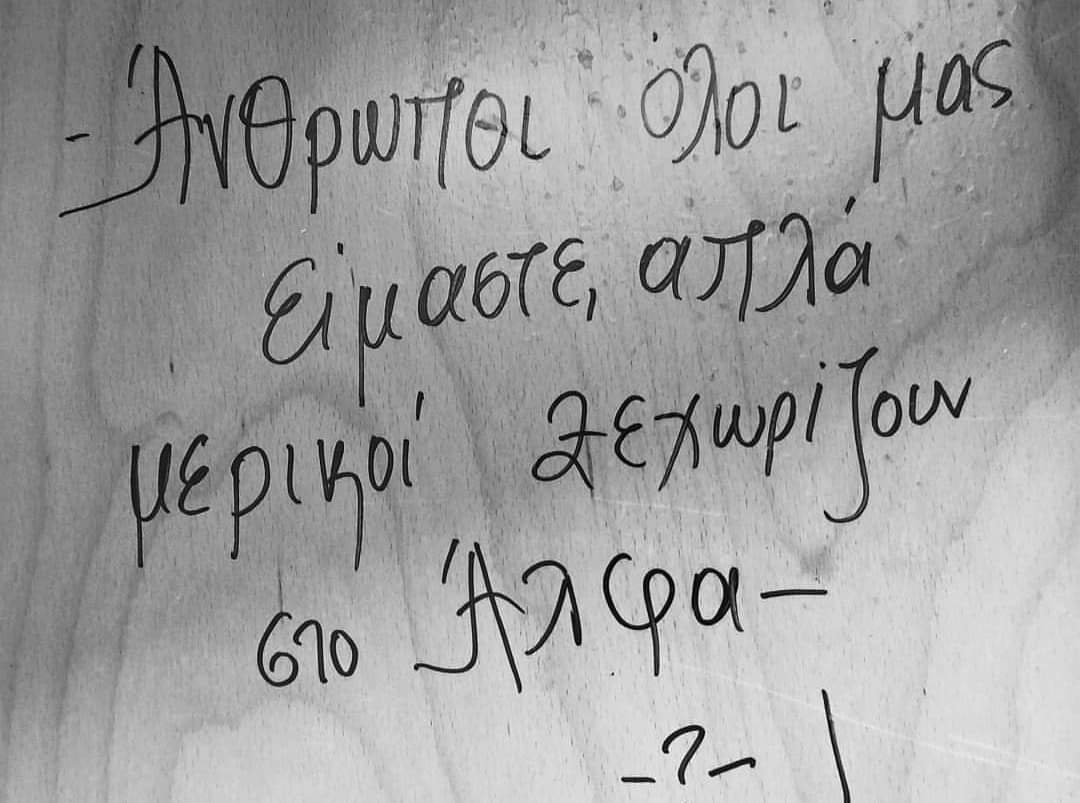 -Άνθρωποι όλοι μας
είμαστε, απλά
μερικοί ξεχωρίζουν
στο Άλφα-
-?-